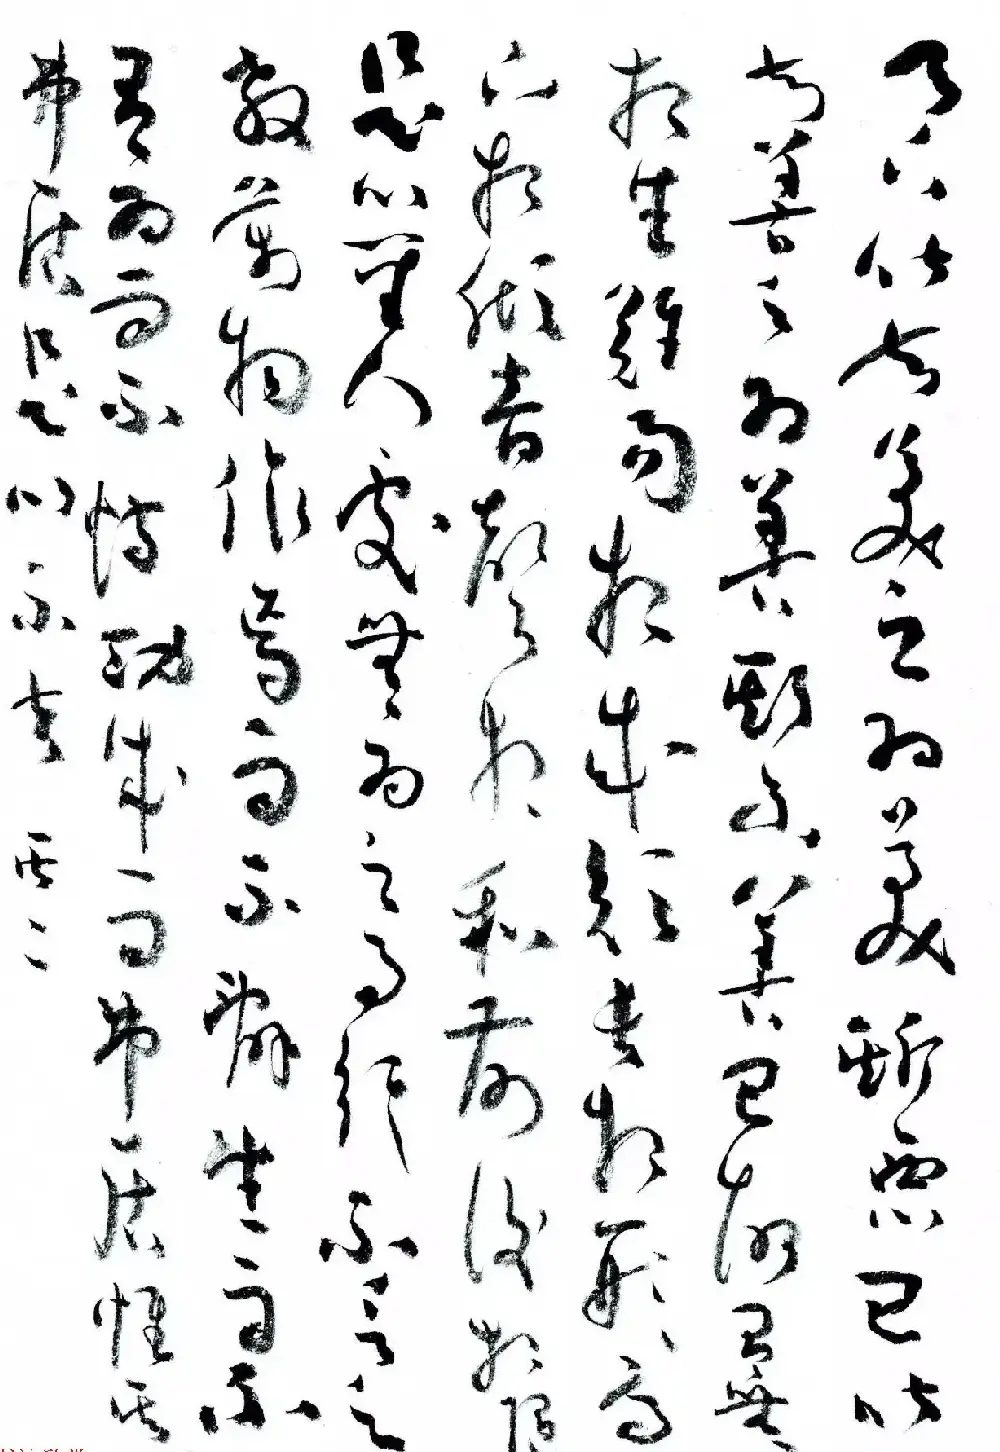 天下皆知美之為美斯惡已皆
知善之為善斯不善已故有無
相生難易相成短長相形高
下相傾音聲相和前後相隨
是以聖人處無為之事行不言之
教萬物作焉而不辭生而不
有為而不恃功成而弗居惟其
弗居是以不去 其二